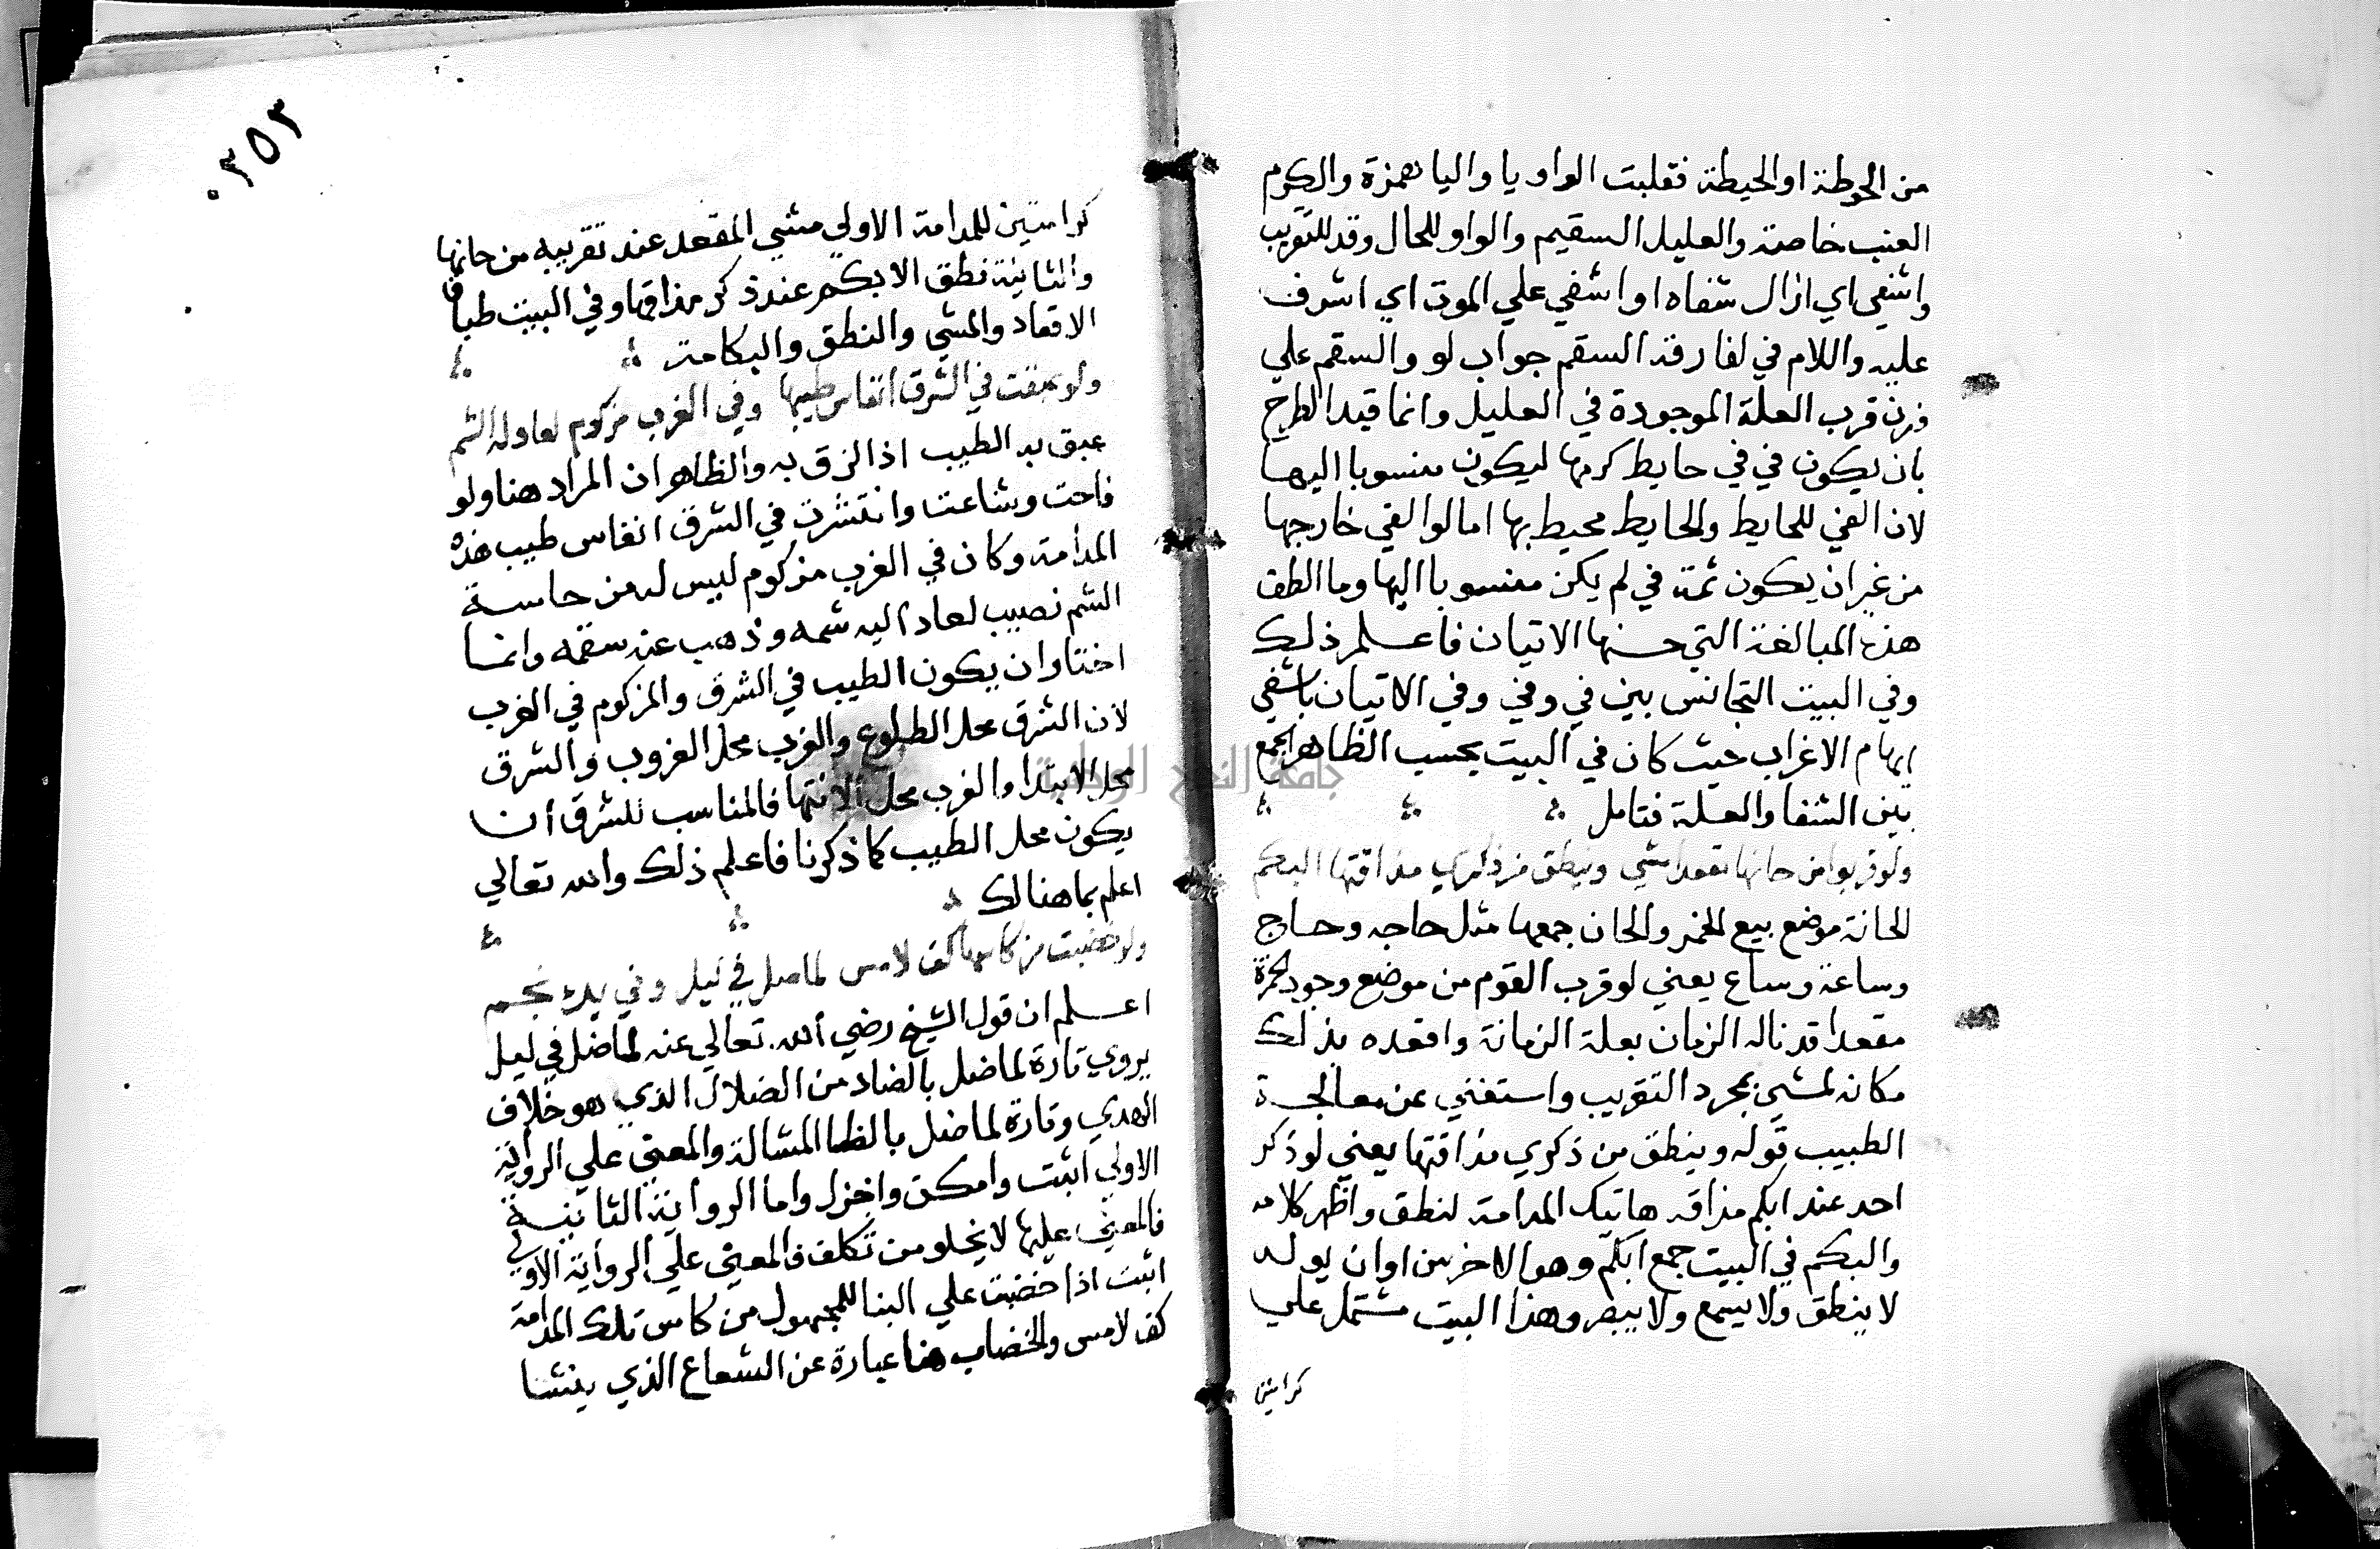 من الحوطة او الحيطة فقلبت الواو يا واليا همزة والكرم
العنب خاصة والعليل السقيم والواو للحال وقد للتقريب
واشفي اي ازال شفاه او اشفي علي الموت اي اشرف
عليه واللام في لفارقه السقم جواب لو والسقم علي
وزن قرب العلة الموجودة في العليل وانما قيد الطرح
بان يكون في في حايط كرمها ليكون منسوبا اليها
لان الفي للحايط والحايط محيط بها اما لو القي خارجها
من غير ان يكون ثمة في لم يكن منسوبا اليها وما الطف
هذه المبالغة التي حسنها الاتيان فاعلم ذلك
وفي البيت التجانس بين في وفي وفي الاتيان باشفي
ايهام الاغراب حيث كان في البيت بحسب الظاهر الجمع
بين الشفا والعلة فتامل
ولو قربوا من حانها مقعدا مشي وينطق من ذكري مذاقتها البكم
الحانة موضع بيع الخمر والحان جمعها مثل حاجه وحاج
وساعة وساع يعني لو قرب القوم من موضع وجود الخمرة
مقعدا قد ناله الزمان بعلة الزمانة واقعده بذلك
مكانه لمشي بمجرد التقريب واستغني عن معالجة
الطبيب قوله وينطق من ذكري مذاقتها يعني لو ذكر
احد عند ابكم مذاقه هاتيك المدامة لنطق واظهر كلامه
والبكم في البيت جمع ابكم وهو الاخرس او ان يولد
لا ينطق ولا يسمع ولا يبصر وهذا البيت مشتمل علي
كرامتين
٠٢٥٣
كرامتين للمدامة الاولي مشي المقعد عند تقريبه من حانها
والثانية نطق الابكم عند ذكر مذاقها وفي البيت طباقا
الاقعاد والمشي والنطق والبكامة
ولو عبقت في الشرق انفاس طيبها وفي الغرب مزكوم لعاد له الشم
عبق به الطيب اذا لزق به والظاهر ان المراد هنا ولو
فاحت وشاعت وانتشرت في الشرق انفاس طيب هذه
المدامة وكان في الغرب مزكوم ليس له من حاسة
الشم نصيب لعاد اليه شمه وذهب عنه سقمه وانما
اختار ان يكون الطيب في الشرق والمزكوم في الغرب
لان الشرق محل الطلوع والغرب محل الغروب والشرق
محل الابتدا والغرب محل الانتها فالمناسب للشرق ان
يكون محل الطيب كما ذكرنا فاعلم ذلك والله تعالي
اعلم بما هنالك
ولو خضبت من كاسها كف لامس لما ضل في ليل وفي يده نجم
اعلم ان قول الشيخ رضي الله تعالي عنه لما ضل في ليل
يروي تارة لما ضل بالضاد من الضلال الذي هو خلاف
الهدي وتارة لما ضل بالظا المشالة والمعني علي الرواية
الاولي اثبت وامكن واجزل واما الرواية الثانية
فالمعني عليها لا يخلو من تكلف فالمعني علي الرواية الاولي
اثبت اذا خضبت علي البنا للمجهول من كاس تلك المدامة
كف لامس والخضاب هنا عبارة عن الشعاع الذي ينشا